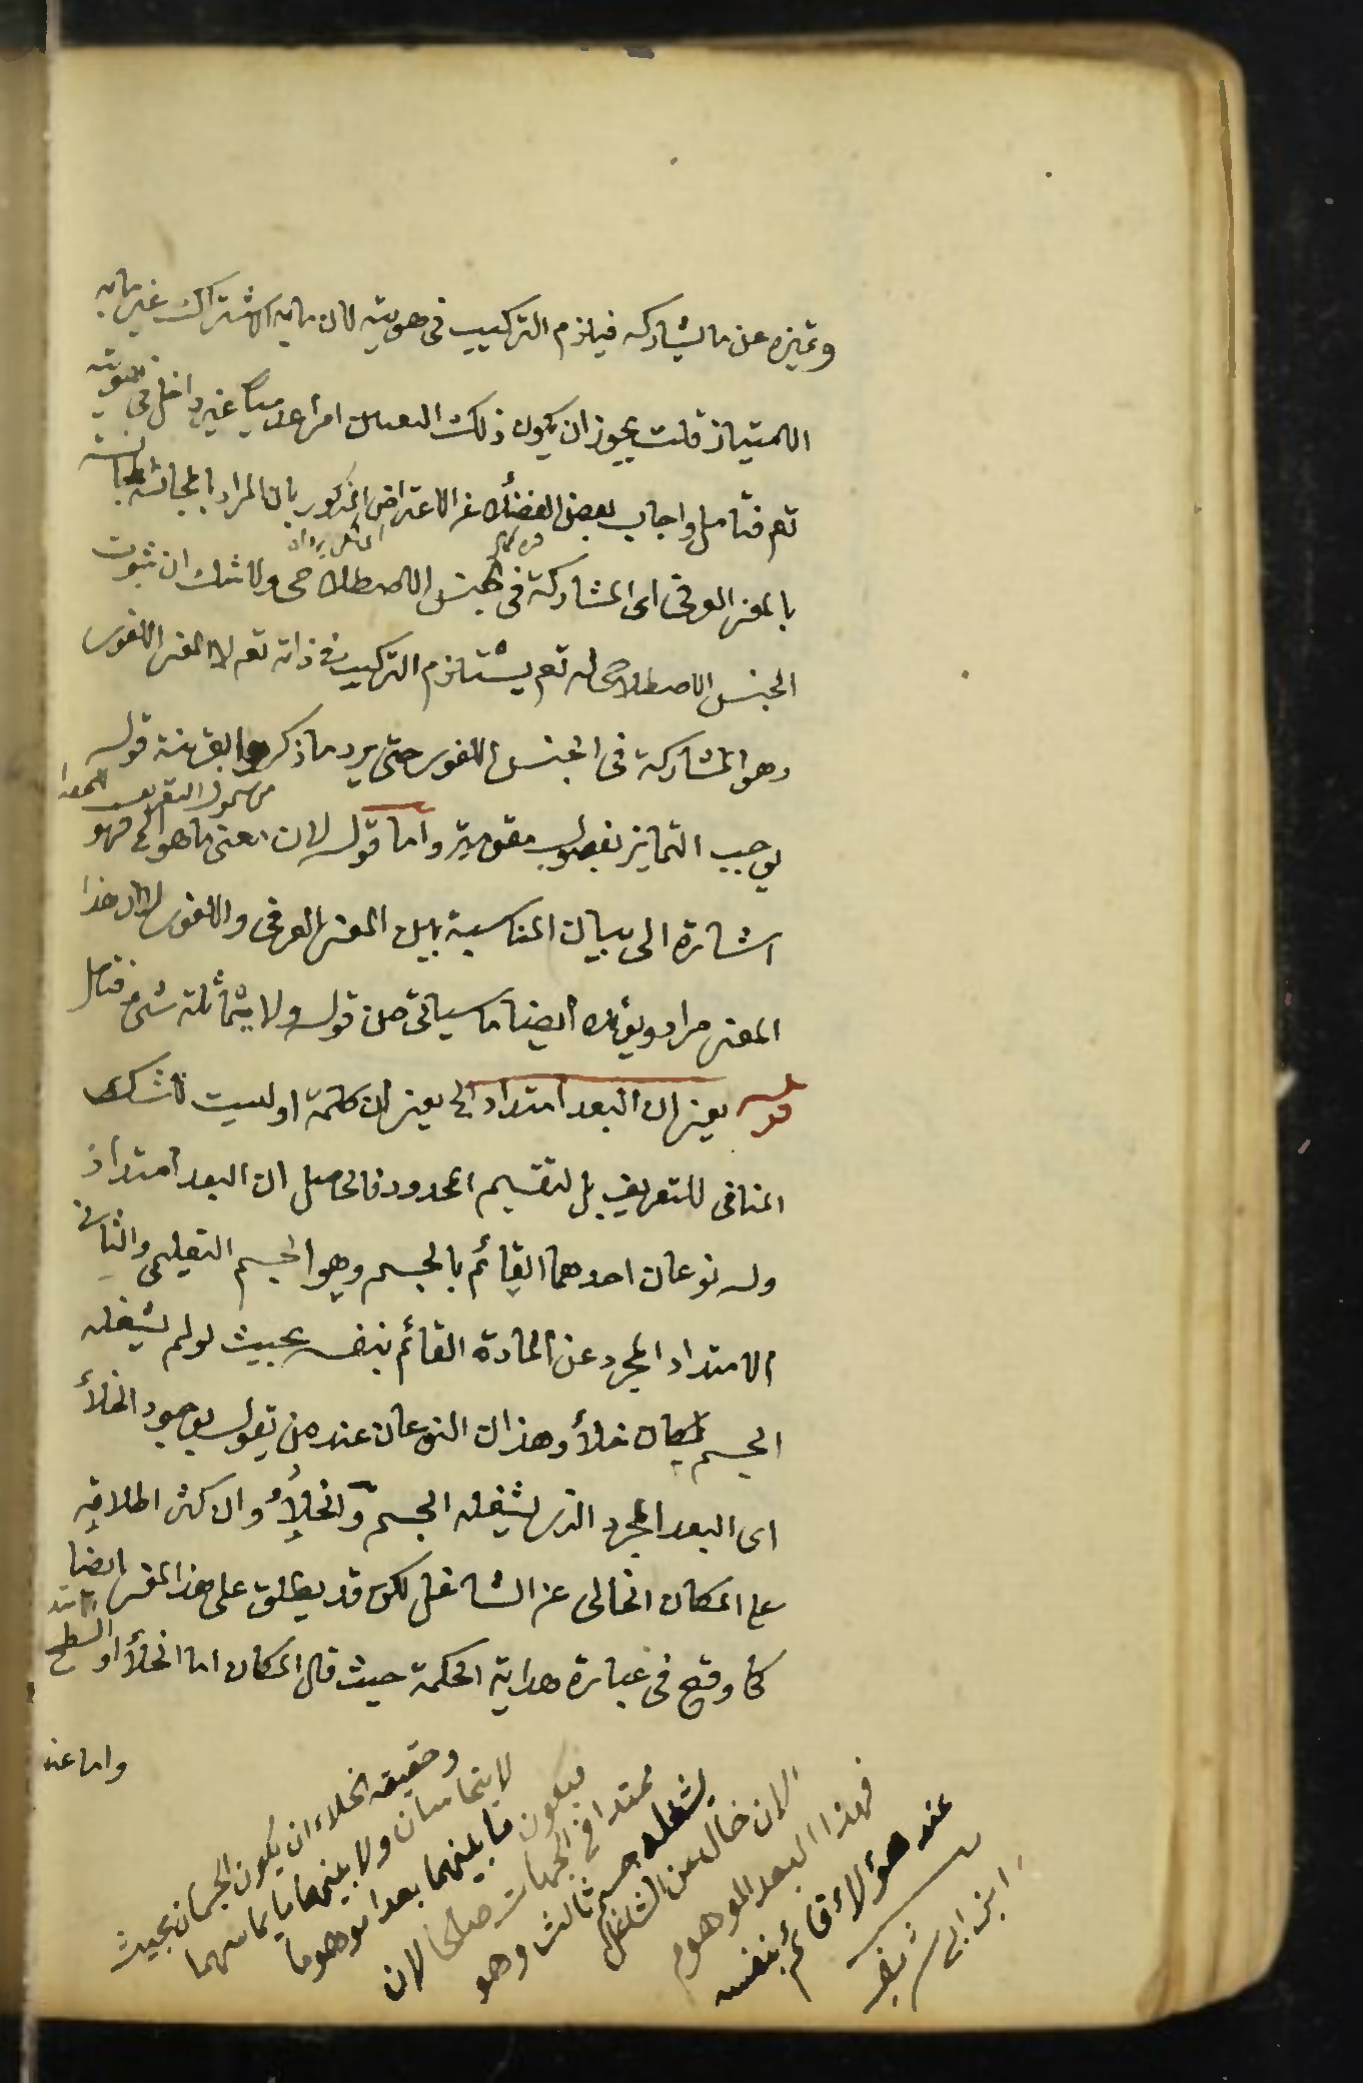 وتميزه عن ما يشاركه فيلزم التركيب في هويته لان ما به الاشتراك غير ما به
الامتياز قلت يجوز ان يكون ذلك التعين امرا عدميا غير داخل في هويته
تعم فتامل واجاب بعض الفضلاء عن الاعتراض المذكور بان المراد بالمجانسة
بالمعنى العرفي اى المشاركة في الجنس الاصطلاحى ولا شك ان ثبوت
الجنس الاصطلاحى له تعم يستلزم التركيب في ذاته تعم لا المعنى اللغوى
وهو المشاركة في الجنس اللغوى حتى يرد ما ذكر بقرينة قوله
يوجب التمايز بفصول مقومة واما قوله لان معنى ما هو الخ فهو
اشارة الى بيان المناسبة بين المعنى العرفى واللغوى لا ان هذا
المعنى مراد ويؤيده ايضا ما سياتى من قوله ولا يماثله شئ فتامل
قوله يعنى ان البعد امتداد الخ يعنى ان كلمة او ليست للشك
المنافى للتعريف بل لتقسيم المحدود فالحاصل ان البعد امتداد
وله نوعان احدهما القائم بالجسم وهو الجسم التعليمى والثانى
الامتداد المجرد عن المادة القائم بنفسه بحيث لو لم يشغله
الجسم لكان خلأ وهذان النوعان عند من يقول بوجود الخلأ
اى البعد المجرد الذى يشغله الجسم والخلأ وان كثر اطلاقه
على المكان الخالى عن الشاغل لكن قد يطلق على هذا المعنى ايضا
كما وقع في عبارة هداية الحكمة حيث قال المكان اما الخلأ او السطح
واما عند
وحقيقة الخلاء ان يكون الجسمان بحيث
لا يتماسان ولا بينهما ما يماسهما
فيكون ما بينهما بعدا موهوما
ممتدا في الجهات صالحا لان
يشغله جسم ثالث وهو
الان خال عن الشاغل
فهذا البعد الموهوم
عند هؤلاء قائم بنفسه
ابن ابى شريف